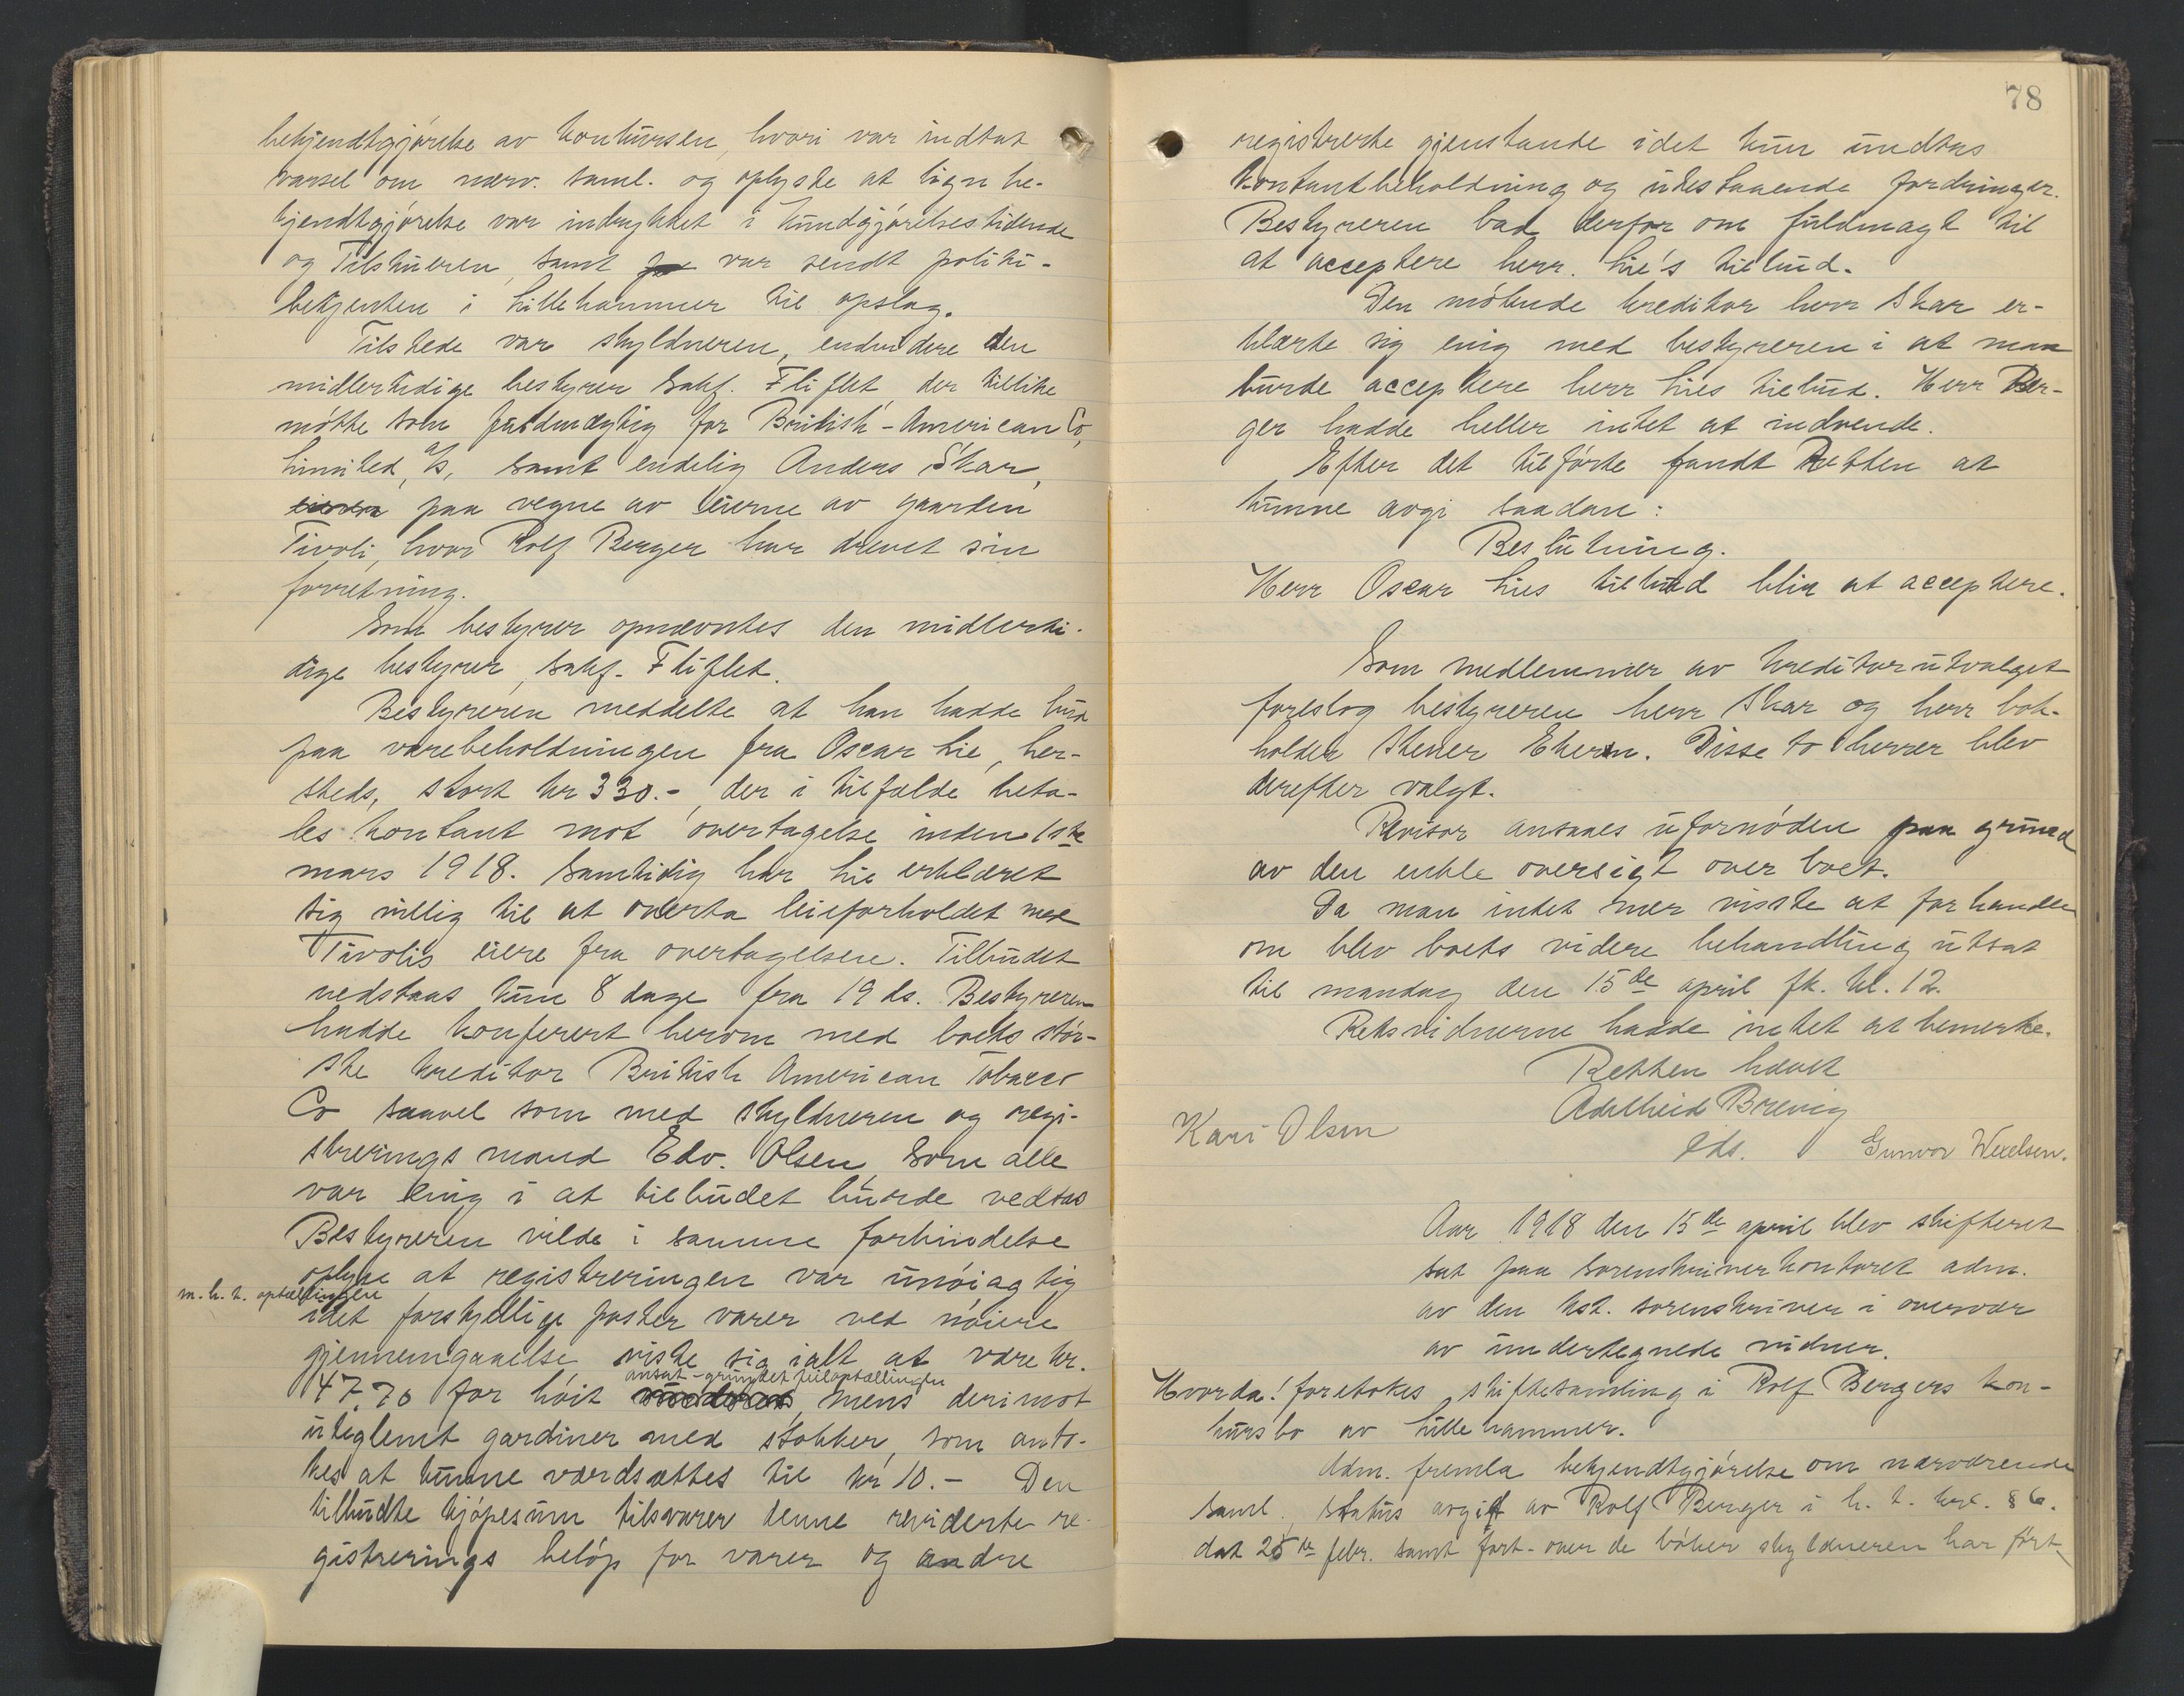 bekjendtgjørelse av konkursen, hvori var indtat
varsel om nærv. saml. og oplyste at lign be-
kjendtgjørelse var indrykket i Kundgjørelsestidende
og Tilskueren, samt var sendt politi-
betjenten i Lillehammer til opslag.
Tilstede var skyldneren, endvidere den
midlertidige bestyrer sakf. Fliflet, der tillike
møtte som fuldmægtig for British-American Co,
Limited, A/S, samt endelig Anders Skar,
paa vegne av eierne av gaarden
Tivoli, hvor Rolf Berger har drevet sin
forretning.
Som bestyrer opnævntes den midlerti-
dige bestyrer, sakf. Fliflet.
Bestyreren meddelte at han hadde bud
paa varebeholdningen fra Oscar Lie, her-
steds, stort kr 330.-, der i tilfælde beta-
les kontant mot overtagelse inden 1ste
mars 1918. Samtidig har Lie erklæret
sig villig til at overta leieforholdet med
Tivolis eiere fra overtagelsen. Tilbudet
vedstaas kun 8 dage fra 19 ds. Bestyreren
hadde konferert herom med boets stør-
ste kreditor British American Tobacco
Co saavel som med skyldneren og regi-
streringsmand Edv. Olsen, som alle
var enig i at tilbudet burde vedtas
Bestyreren vilde i samme forbindelse
oplyse at registreringen var unøiagtig
m.h.t. optællingen
idet forskjellige poster varer ved nøiere
gjennemgaaelse viste sig ialt at være kr.
ansat - grundet feiloptællingen
47.70 for høit mens derimot
uteglemt gardiner med stokker, som anto-
kes at kunne værdsættes til kr 10.- Den
tilbudte kjøpesum tilsvarer denne reviderte re-
gistrerings beløp for varer og andre
78
registrerte gjenstande idet kun undtas
kontantbeholdning og utestaaende fordringer.
Bestyreren bad derfor om fuldmagt til
at acceptere herr. Lie's tilbud.
Den møtende kreditor herr Skar er-
klærte sig enig med bestyreren i at man
burde acceptere herr Lies tilbud. Herr Ber-
ger hadde heller intet at indvende.
Efter det tilførte fandt Retten at
kunne avgi saadan:
Beslutning.
Herr Oscar Lies tilbud blir at acceptere.
Som medlemmer av kreditorutvalget
foreslog bestyreren herr Skar og herr bok-
holder Stener Ekern. Disse to herrer blev
derefter valgt.
Revisor ansaaes ufornøden paa grund
av den enkle oversigt over boet.
Da man intet mer visste at forhandle
om blev boets videre behandling utsat
til mandag den 15de april fk. kl. 12.
Retsvidnerne hadde intet at bemerke.
Retten hævet
Adelheid Brevig
eds.
Kari Olsen
Gunvor Wexelsen.
Aar 1918 den 15de april blev skifteret
sat paa sorenskriverkontoret adm.
av den kst. sorenskriver i overvær
av undertegnede vidner.
Hvorda! foretokes skiftesamling i Rolf Bergers kon-
kursbo av Lillehammer.
Adm. fremla bekjendtgjørelse om nærværende
saml., status avgit av Rolf Berger i h. t. § 6.
dat 25de febr. samt fort- over de bøker skyldneren har ført